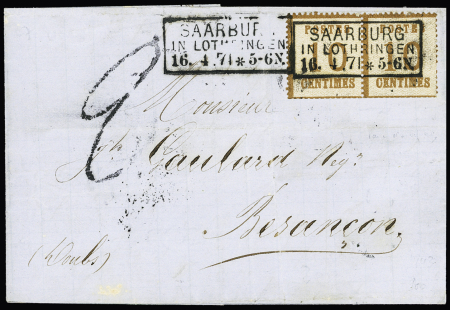 SAARBUR
IN LOTHRINGEN
16. 4. 71 * 5-6N.
SAARBURG
IN LOTHRINGEN
16. 4. 71 * 5-6N.
P STE
10
CENTIMES
CENTIMES
2
Monsieur
Jph Gaulard Ngt.
Besançon
(Doubs)